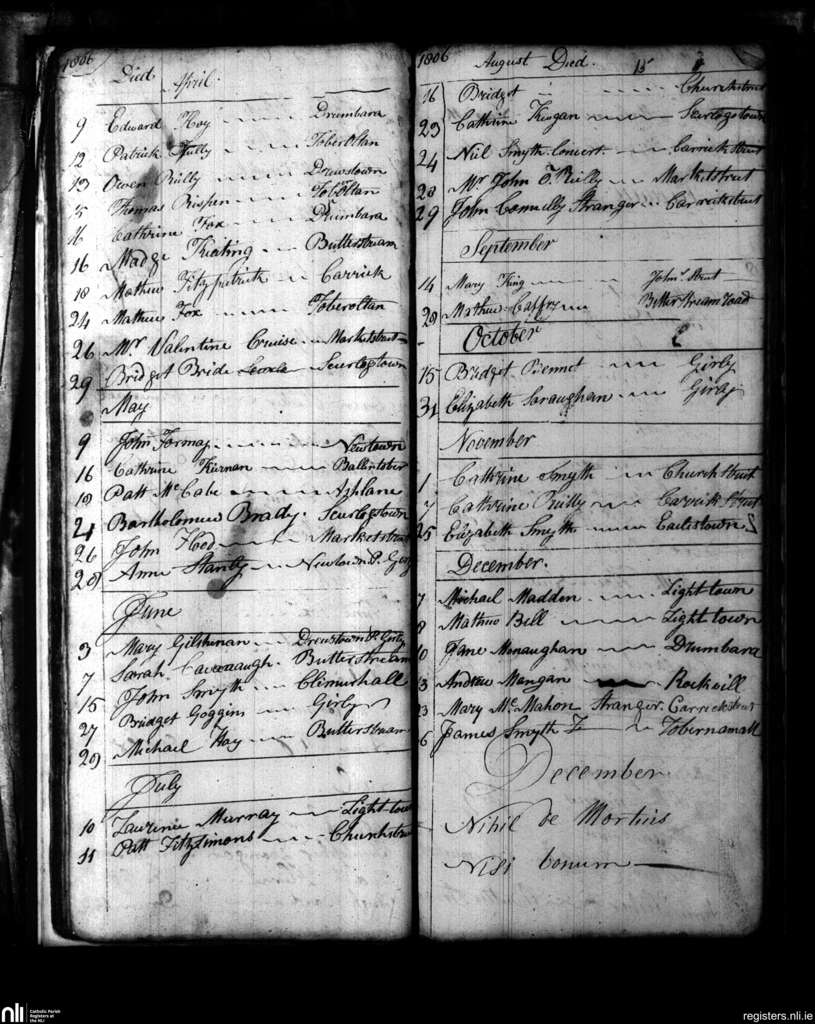 1806
Died April.
9 Edward Hoy Drumbara
12 Patrick Tully Toberoltan
13 Owen Reilly Drewstown
15 Thomas Toboltan
16 Cathrine Fox Drumbara
16 Madge Keating Butterstream
18 Mathew Fitzpatrick Carrick
24 Mathew Fox Toberoltan
26 Mr Valentine Cruise Marketstreet
29 Bridget Bride Scurlogstown
May
9 John Formay Newtown
16 Cathrine Kiernan Ballintober
18 Patt McCabe Ashlane
21 Bartholomew Brady. Scurlogstown
26 John Marketstreet
28 Anne Newtown P.
June
3 Mary Gilshinan Drewstown P. Girly
7 Sarah Cavenaugh. Butterstream
15 John Smyth
27 Bridget Goggins Girly
29 Michael Hay Butterstream
July
10 Laurence Murray Light town
11 Patt Fitzsimons Churchstreet
1806 August Died.
16 Bridget Churchstreet
23 Cathrine Keogan Scurlogstown
24 Niel Smyth Convert. Carrick Street
28 Mr John O'Reilly Marketstreet
29 John Connelly Stranger Carrickstreet
September
14 Mary King Johns Street
29 Mathew Caffry Butterstream road
October
15 Bridget Bennet Girly
31 Elizabeth Girly
November
1 Cathrine Smyth Church Street
7 Cathrine Reilly Carrick Street
25 Elizabeth Smyth
December.
7 Michael Madden Light town
8 Mathew Bell Light town
10 Jane Monaughan Drumbara
13 Andrew Mangan Rockvill
13 Mary McMahon Stranger. Carrickstreet
James Smyth
December
Nihil de Mortuis
Nisi bonum
nli Catholic Parish
Registers at
the NLI
registers.nli.ie